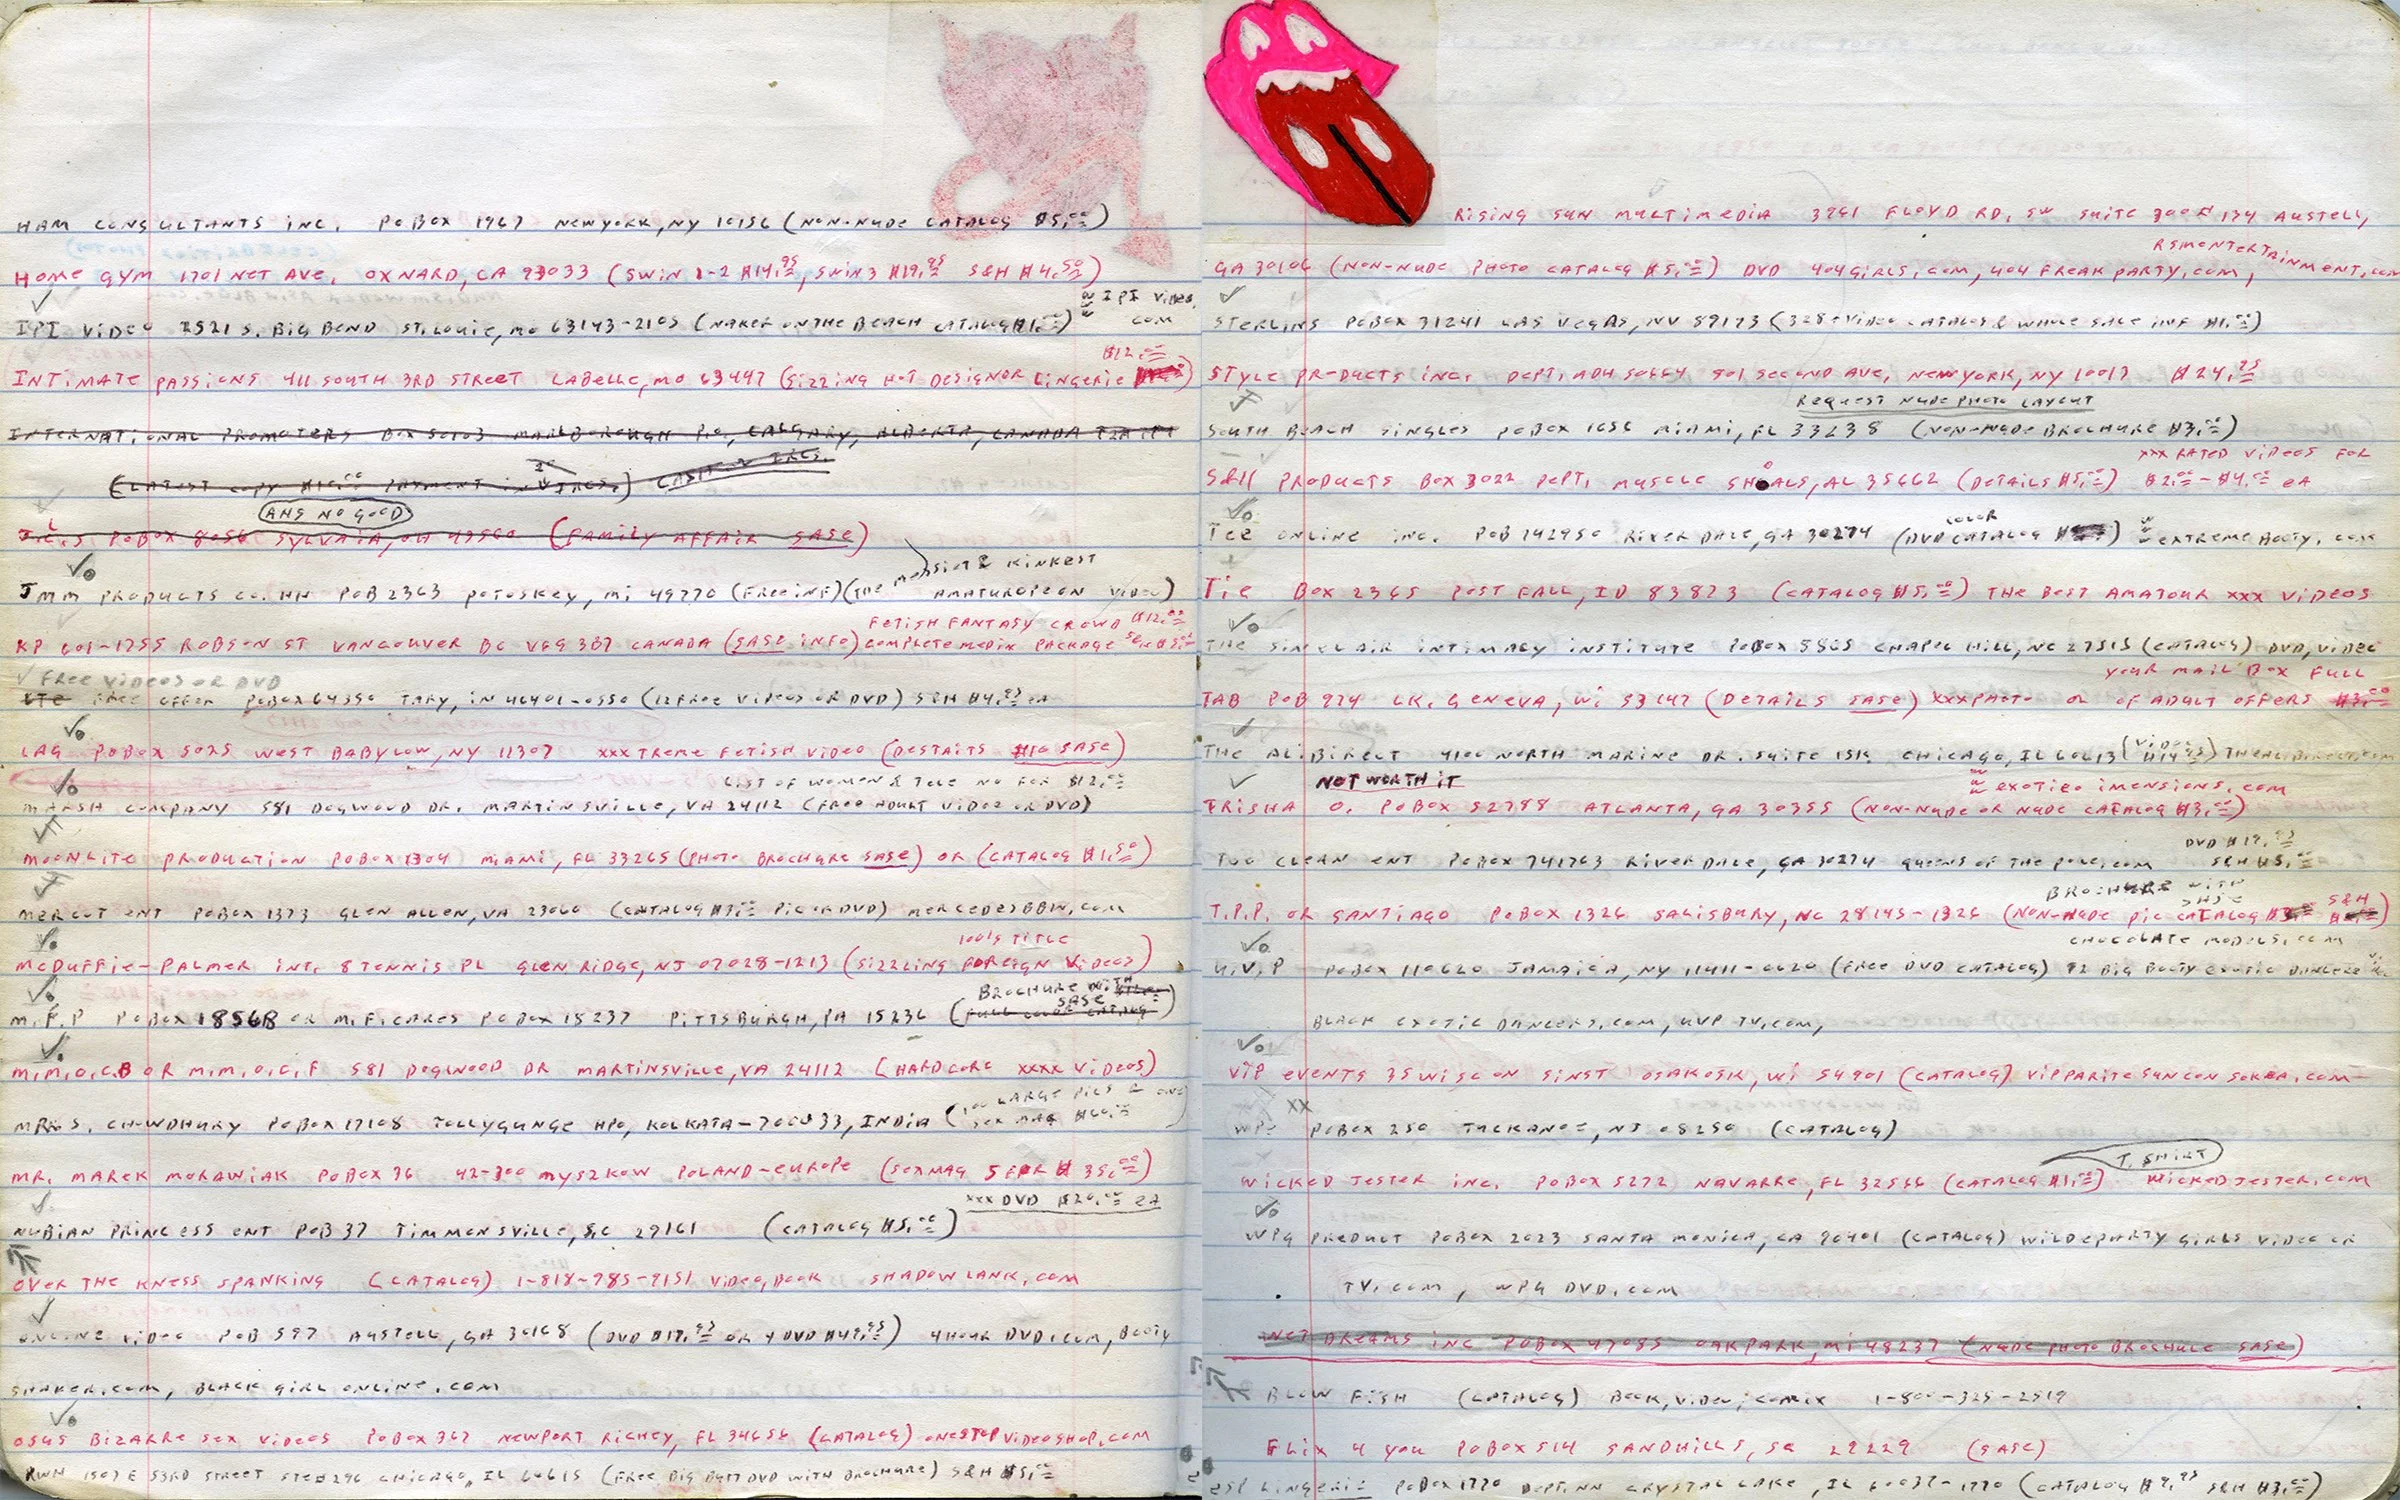 HAM CONSULTANTS INC. POBOX 1967 NEWYORK, NY 10156 (NON-NUDE CATALOG $5.00)
HOME GYM 1701 NET AVE. OXNARD, CA 93033 (SWIN 1-2 $14.95, SWIN 3 $19.95 S&H $4.50)
www IPI VIDEO.
COM
IPI VIDEO 2521 S. BIG BEND ST. LOUIE, MO 63143-2105 (NAKED ON THE BEACH CATALOG $1.00)
$12.00
INTIMATE PASSIONS 411 SOUTH 3RD STREET LABELLE, MO 63447 (SIZZING HOT DESIGNOR LINGERIE)
INTERNATIONAL PROMOTERS BOX 50103 MARLBOROUGH P.O., CALGARY, ALBERTA, CANADA
(LATEST COPY $10.00 PAYMENT IN IRCS.) CASH OR IRCS.
AHS NO GOOD
J.L.S POBOX 8056 SYLVAIA, OH 43560 (FAMILY AFFAIR SASE)
JMM PRODUCTS CO. HH POB 2363 PETOSKEY, MI 49770 (FREE INF) (THE MESSIEST & KINKEST
AMATUROPEON VIDEO)
FETISH FANTASY CROWD $12.00
KP 601-1755 ROBSON ST VANCOUVER BC V6G 3B7 CANADA (SASE INFO) COMPLETE MEDIX PACKAGE
FREE VIDEOS OR DVD
FREE OFFER POBOX 64350 TARY, IN 46401-0550 (12 FREE VIDEOS OR DVD) S&H $4.95 EA
LAG POBOX 5025 WEST BABYLOW, NY 11707 XXXTREME FETISH VIDEO (DESTAITS SASE)
LIST OF WOMEN & TELE NO FOR $12.00
MARSH COMPANY 581 DOGWOOD DR. MARTINSVILLE, VA 24112 (FREE ADULT VIDEO OR DVD)
MOONLITE PRODUCTION POBOX 1304 MIAMI, FL 33265 (PHOTO BROCHURE SASE) OR (CATALOG $1.50)
MERCUT ENT POBOX 1373 GLEN ALLEN, VA 23060 (CATALOG $3.00 PIC OR DVD) MERCEDESBBW.COM
100'S TITLE
MCDUFFIE-PALMER INT. 8 TENNIS PL GLEN RIDGE, NJ 07028-1213 (SIZZLING FOREIGN VIDEOS)
BROCHURE WITH
SASE
M.F.P POBOX 18568 OR M.F. CARES POBOX 15237 PITTSBURGH, PA 15236 (FULL COLOR CATALOG)
M.M.O.C.B OR M.M.O.C.F 581 DOGWOOD DR MARTINSVILLE, VA 24112 (HARDCORE XXXX VIDEOS)
100 LARGE PICS & ONE
MRS S. CHOWDHURY POBOX 17108 TOLLYGUNGE HPO, KOLKATA-700033, INDIA (SEX MAG $60.00)
MR. MAREK MORAWIAK POBOX 36 42-300 MYSZKOW POLAND-EUROPE (SEXMAG 5 FOR $35.00)
XXX DVD $20.00 EA
NUBIAN PRINCESS ENT POB 37 TIMMONSVILLE, SC 29161 (CATALOG $5.00)
OVER THE KNESS SPANKING (CATALOG) 1-818-785-7151 VIDEO, BOOK SHADOW LANK.COM
ONLINE VIDEO POB 597 AUSTELL, GA 30168 (DVD $17.95 OR 4 DVD $49.95) 4HOUR DVD.COM, BOOTY
SHAKER.COM, BLACK GIRL ONLINE.COM
OSUS BIZARRE SEX VIDEOS POBOX 367 NEWPORT RICHEY, FL 34656 (CATALOG) ONESTOPVIDEOSHOP.COM
RWH 1507 E 53RD STREET STE #296 CHICAGO, IL 60615 (FREE BIG BUTT DVD WITH BROCHURE) S&H $5.00
RISING SUN MULTIMEDIA 3961 FLOYD RD, SW SUITE 300 # 174 AUSTELL,
RSMENTERTAINMENT.COM
GA 30106 (NON-NUDE PHOTO CATALOG $5.00) DVD 404GIRLS.COM, 404 FREAK PARTY.COM,
STERLINS POBOX 31241 LAS VEGAS, NV 89173 (328+ VIDEO CATALOG & WHOLE SALE INF $1.00)
STYLE PRODUCTS INC. DEPT. 901 SECOND AVE, NEWYORK, NY 10017 $24.95
REQUEST NUDE PHOTO LAYOUT
SOUTH BEACH SINGLES POBOX 1656 MIAMI, FL 33238 (NON-NUDE BROCHURE $3.00)
XXX RATED VIDEOS FOR
S&H PRODUCTS BOX 3022 DEPT. MUSCLE SHOALS, AL 35662 (DETAILS $5.00) $2.00-$4.00 EA
COLOR
TCE ONLINE INC. POB 742950 RIVERDALE, GA 30274 (DVD CATALOG) www EXTREME BOOTY.COM
TIE BOX 2365 POST FALL, ID 83873 (CATALOG $5.00) THE BEST AMATOUR XXX VIDEOS
THE SINCLAIR INTIMACY INSTITUTE POBOX 5865 CHAPEL HILL, NC 27515 (CATALOG) DVD, VIDEO
YOUR MAIL BOX FULL
TAB POB 974 LK. GENEVA, WI 53147 (DETAILS SASE) XXXPHOTO OR OF ADULT OFFERS $3.00
THE ALIBIRECT 4100 NORTH MARINE DR. SUITE 15K CHICAGO, IL 60613 (VIDEO $14.95) THEALIBIRECT.COM
NOT WORTH IT
www EXOTICO IMENSIONS.COM
TRISHA O. POBOX 52788 ATLANTA, GA 30355 (NON-NUDE OR NUDE CATALOG $3.00)
DVD $17.95
TOO CLEAN ENT POBOX 741763 RIVERDALE, GA 30274 QUEENS OF THE POLE.COM S&H $5.00
BROCHURE WITH
SASE S&H
T.P.P. OR SANTIAGO POBOX 1326 SALISBURY, NC 28145-1326 (NON-NUDE PIC CATALOG)
CHOCOLATE MODELS.COM
U.V.P POBOX 110620 JAMAICA, NY 11411-0620 (FREE DVD CATALOG) 72 BIG BOOTY EXOTIC DANCERS
BLACK EXOTIC DANCERS.COM, UVP TV.COM,
VIP EVENTS 35 WISCON SINST OSAKOSK, WI 54901 (CATALOG)
XX
POBOX 250 TUCKAHOE, NJ 08250 (CATALOG)
T. SHIRT
WICKED JESTER INC. POBOX 5272 NAVARRE, FL 32566 (CATALOG $1.00) WICKEDJESTER.COM
WPG PRODUCT POBOX 2023 SANTA MONICA, CA 90401 (CATALOG) WILDEPARTY GIRLS VIDEO OR
TV.COM, WPG DVD.COM
WET DREAMS INC POBOX 47085 OAKPARK, MI 48237 (NUDE PHOTO BROCHURE SASE)
BLOW FISH (CATALOG) BOOK, VIDEO, COMIX 1-800-325-2519
FLIX 4 YOU POBOX 514 SANDHILLS, SC 29229 (SASE)
ESP LINGERIE POBOX 1770 DEPT. NN CRYSTAL LAKE, IL 60039-1770 (CATALOG $9.95 S&H $3.00)